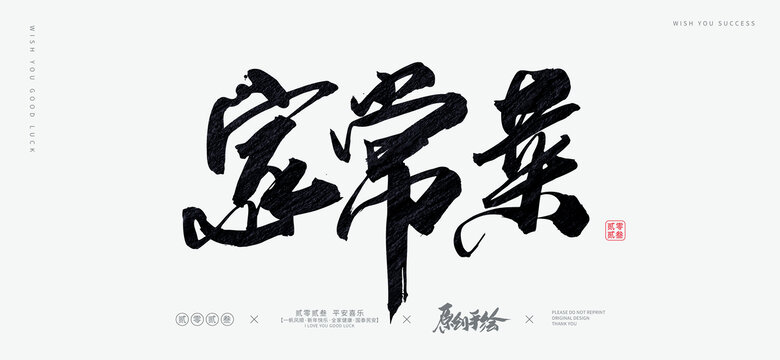 WISH YOU GOOD LUCK
WISH YOU SUCCESS
家常菜
贰零
贰叁
贰零贰叁
×
贰零贰叁 平安喜乐
【一帆风顺·新年快乐·全家健康·国泰民安】
I LOVE YOU GOOD LUCK
×
原创手绘
×
PLEASE DO NOT REPRINT
ORIGINAL DESIGN
THANK YOU